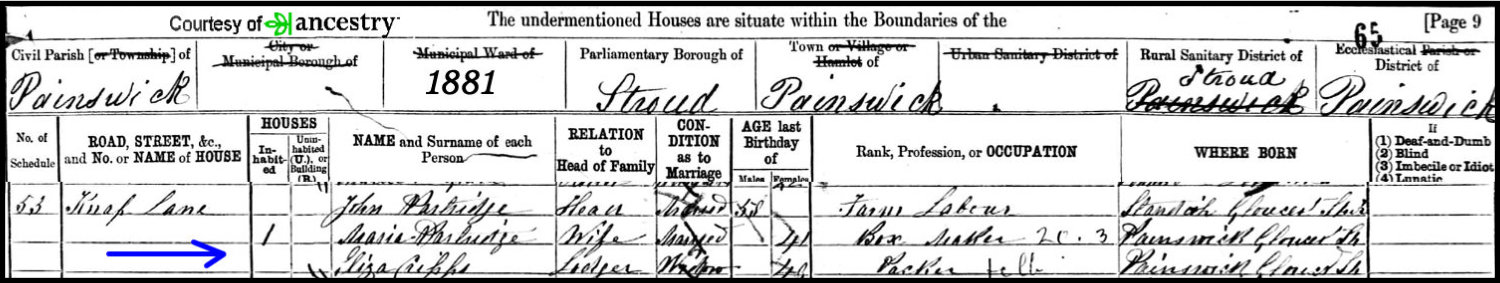 Courtesy of ancestry The undermentioned Houses are situate within the Boundaries of the 65 [Page 9
Civil Parish [or Township] of City or Municipal Borough of Municipal Ward of Parliamentary Borough of Town or Village or Hamlet of Urban Sanitary District of Rural Sanitary District of Ecclesiastical Parish or District of
Painswick 1881 Stroud Painswick Stroud Painswick Painswick
No. of Schedule ROAD, STREET, &c., and No. or NAME of HOUSE HOUSES Inhabited Uninhabited (U.), or Building (B.) NAME and Surname of each Person RELATION to Head of Family CONDITION as to Marriage AGE last Birthday of Males Females Rank, Profession, or OCCUPATION WHERE BORN If (1) Deaf-and-Dumb (2) Blind (3) Imbecile or Idiot (4) Lunatic
53 Knap Lane John Partridge Head Married 58 Farm Labour Standish Gloucer
1 Maria Partridge Wife Married 41 Box Maker Painswick Gloucer Sh
Eliza Cripps Lodger Widow Packer Painswick Gloucer Sh